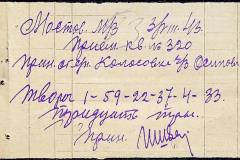 Мостов. М/З 3/VIII-43
Прием. кв. № 320
Прин. от гр. Колосовки з/з
Творог 1-59-22-37-4-33.
Тридцать три.
Прин.